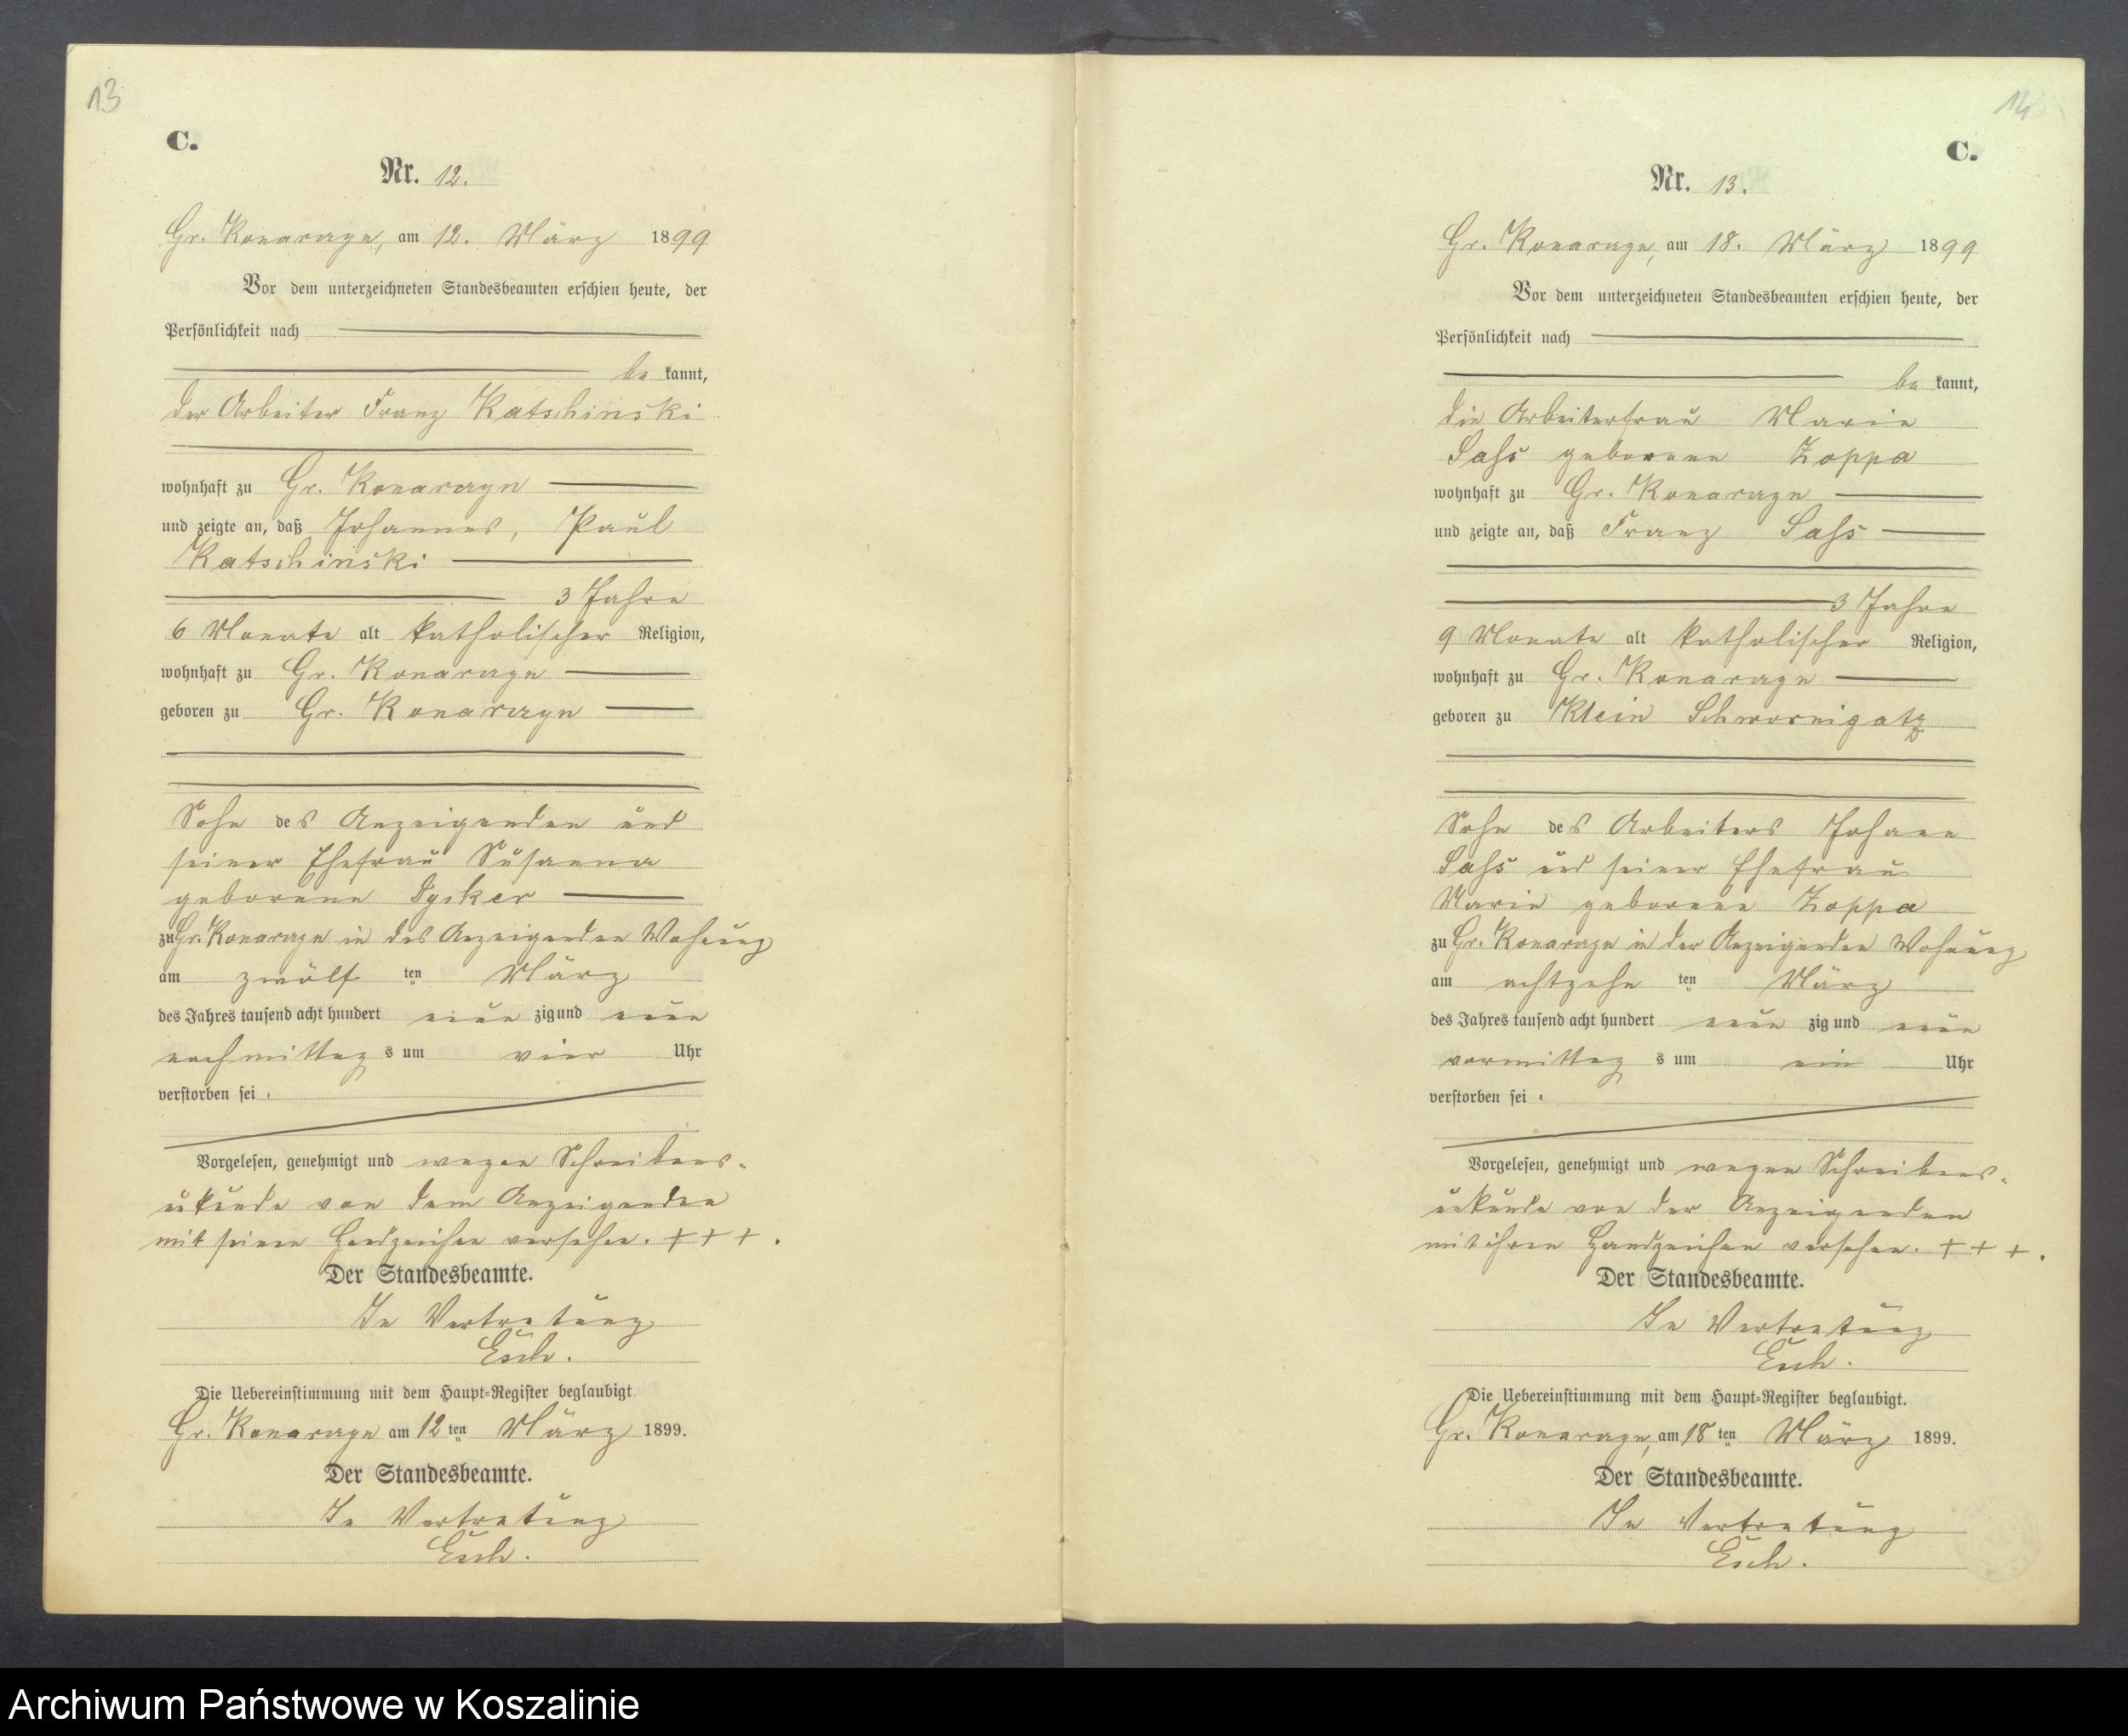 13
C.
Nr. 12.
Gr. Konarzyn, am 12. März 1899
Vor dem unterzeichneten Standesbeamten erschien heute, der
Persönlichkeit nach
be kannt,
der Arbeiter Franz Katschinski
wohnhaft zu Gr. Konarzyn
und zeigte an, daß Johannes, Paul
Katschinski
3 Jahre
6 Monate alt katholischer Religion,
wohnhaft zu Gr. Konarzyn
geboren zu Gr. Konarzyn
Sohn des Anzeigenden und
seiner Ehefrau Susanna
geborene
zu Gr. Konarzyn in des Anzeigenden Wohnung
am zwölf ten März
des Jahres tausend acht hundert neun zig und neun
nachmittag s um vier Uhr
verstorben sei.
Vorgelesen, genehmigt und wegen Schreibens-
unkunde von dem Anzeigenden
mit seinen Handzeichen versehen. + + + .
Der Standesbeamte.
In Vertretung
Esch.
Die Uebereinstimmung mit dem Haupt-Register beglaubigt
Gr. Konarzyn am 12 ten März 1899.
Der Standesbeamte.
In Vertretung
Esch.
14
C.
Nr. 13.
Gr. Konarzyn, am 18. März 1899
Vor dem unterzeichneten Standesbeamten erschien heute, der
Persönlichkeit nach
be kannt,
die Arbeiterfrau Marie
Sass geborene Zoppa
wohnhaft zu Gr. Konarzyn
und zeigte an, daß Franz Sass
3 Jahre
9 Monate alt katholischer Religion,
wohnhaft zu Gr. Konarzyn
geboren zu Klein Schwornigatz
Sohn des Arbeiters Johann
Sass und seiner Ehefrau
Marie geborene Zoppa
zu Gr. Konarzyn in der Anzeigenden Wohnung
am achtzehn ten März
des Jahres tausend acht hundert neun zig und neun
vormittag s um ein Uhr
verstorben sei.
Vorgelesen, genehmigt und wegen Schreibens-
unkunde von der Anzeigenden
mit ihren Handzeichen versehen. + + + .
Der Standesbeamte.
In Vertretung
Esch.
Die Uebereinstimmung mit dem Haupt-Register beglaubigt.
Gr. Konarzyn, am 18 ten März 1899.
Der Standesbeamte.
In Vertretung
Esch.
Archiwum Państwowe w Koszalinie